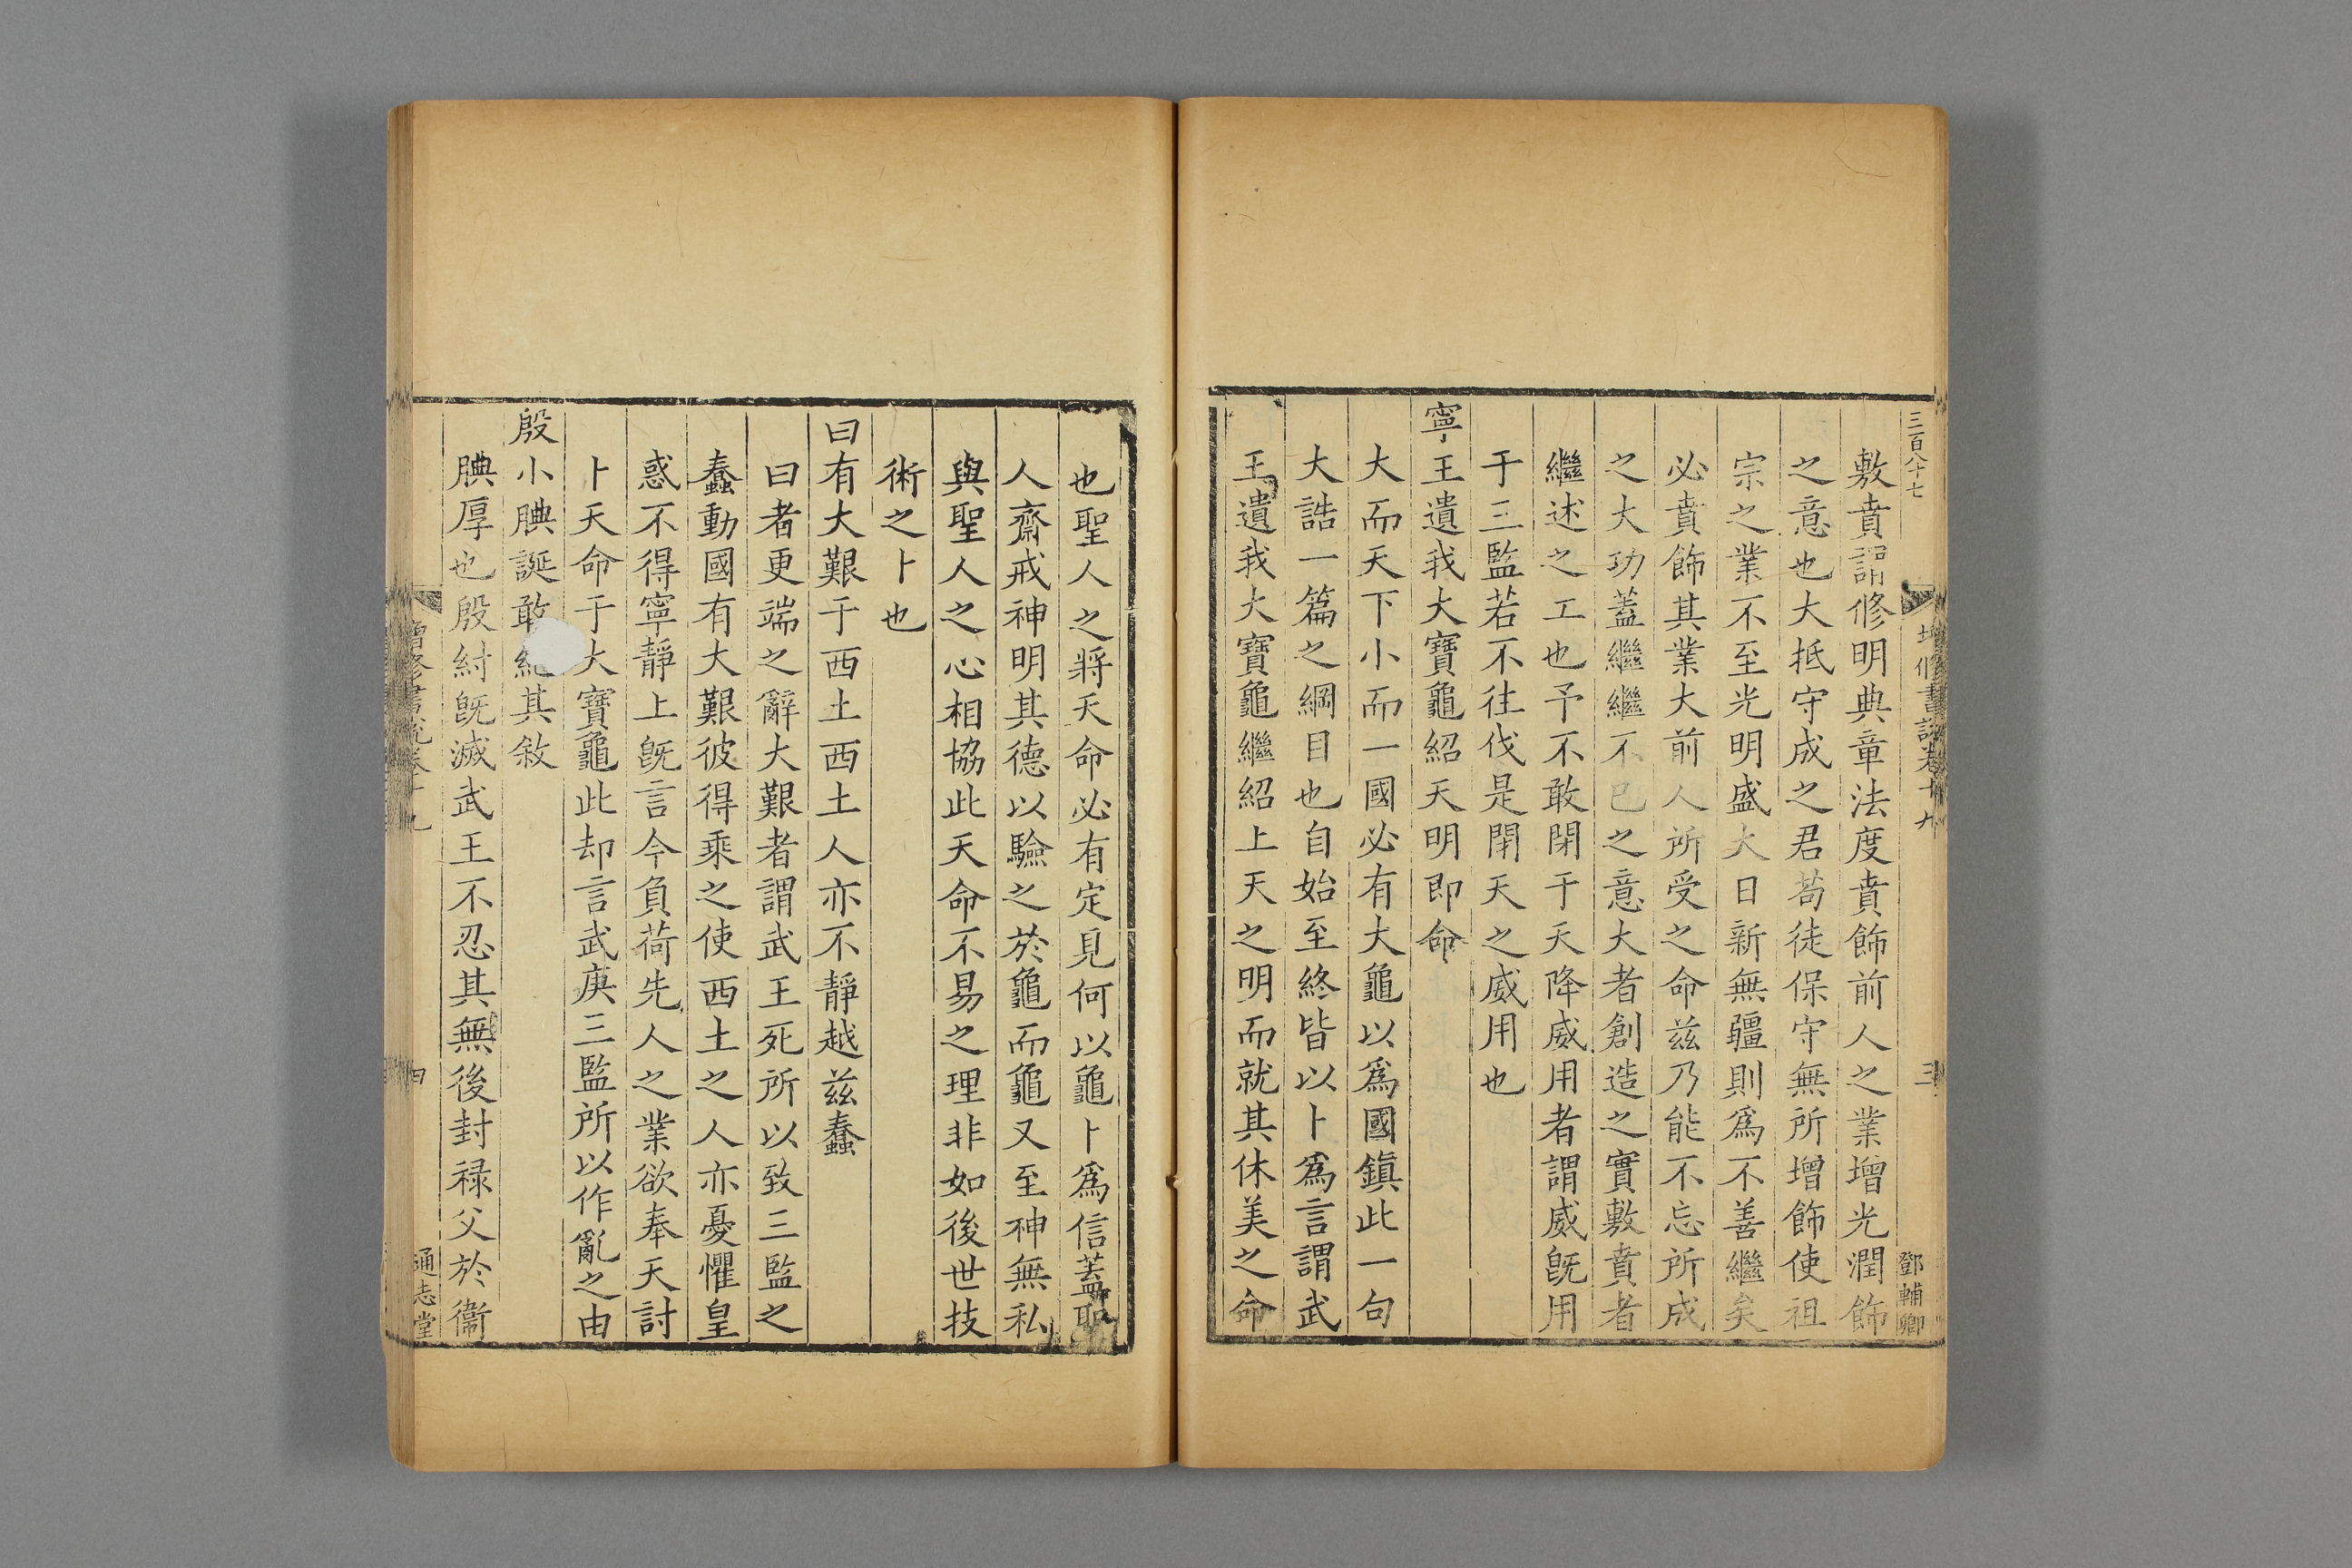 三百八十七
敷賁謂修明典章法度賁飾前人之業增光潤飾
之意也大抵守成之君苟徒保守無所增飾使祖
宗之業不至光明盛大日新無疆則爲不善繼矣
必賁飾其業大前人所受之命茲乃能不忘所成
之大功蓋繼繼不已之意大者創造之實敷賁者
繼述之工也予不敢閉于天降威用者謂威旣用
于三監若不往伐是閉天之威用也
寧王遺我大寶龜紹天明即命
大而天下小而一國必有大龜以爲國鎮此一句
大誥一篇之綱目也自始至終皆以卜爲言謂武
王遺我大寶龜繼紹上天之明而就其休美之命
增修書說卷十九
三
鄧輔卿
也聖人之將天命必有定見何以龜卜爲信蓋聖
人齋戒神明其德以驗之於龜而龜又至神無私
與聖人之心相協此天命不易之理非如後世技
術之卜也
曰有大艱于西土西土人亦不靜越茲蠢
曰者更端之辭大艱者謂武王死所以致三監之
蠢動國有大艱彼得乘之使西土之人亦憂懼皇
惑不得寧靜上旣言今負荷先人之業欲奉天討
卜天命于大寶龜此却言武庚三監所以作亂之由
殷小腆誕敢紀其敘
腆厚也殷紂旣滅武王不忍其無後封祿父於衞
增修書說卷十九
四
通志堂